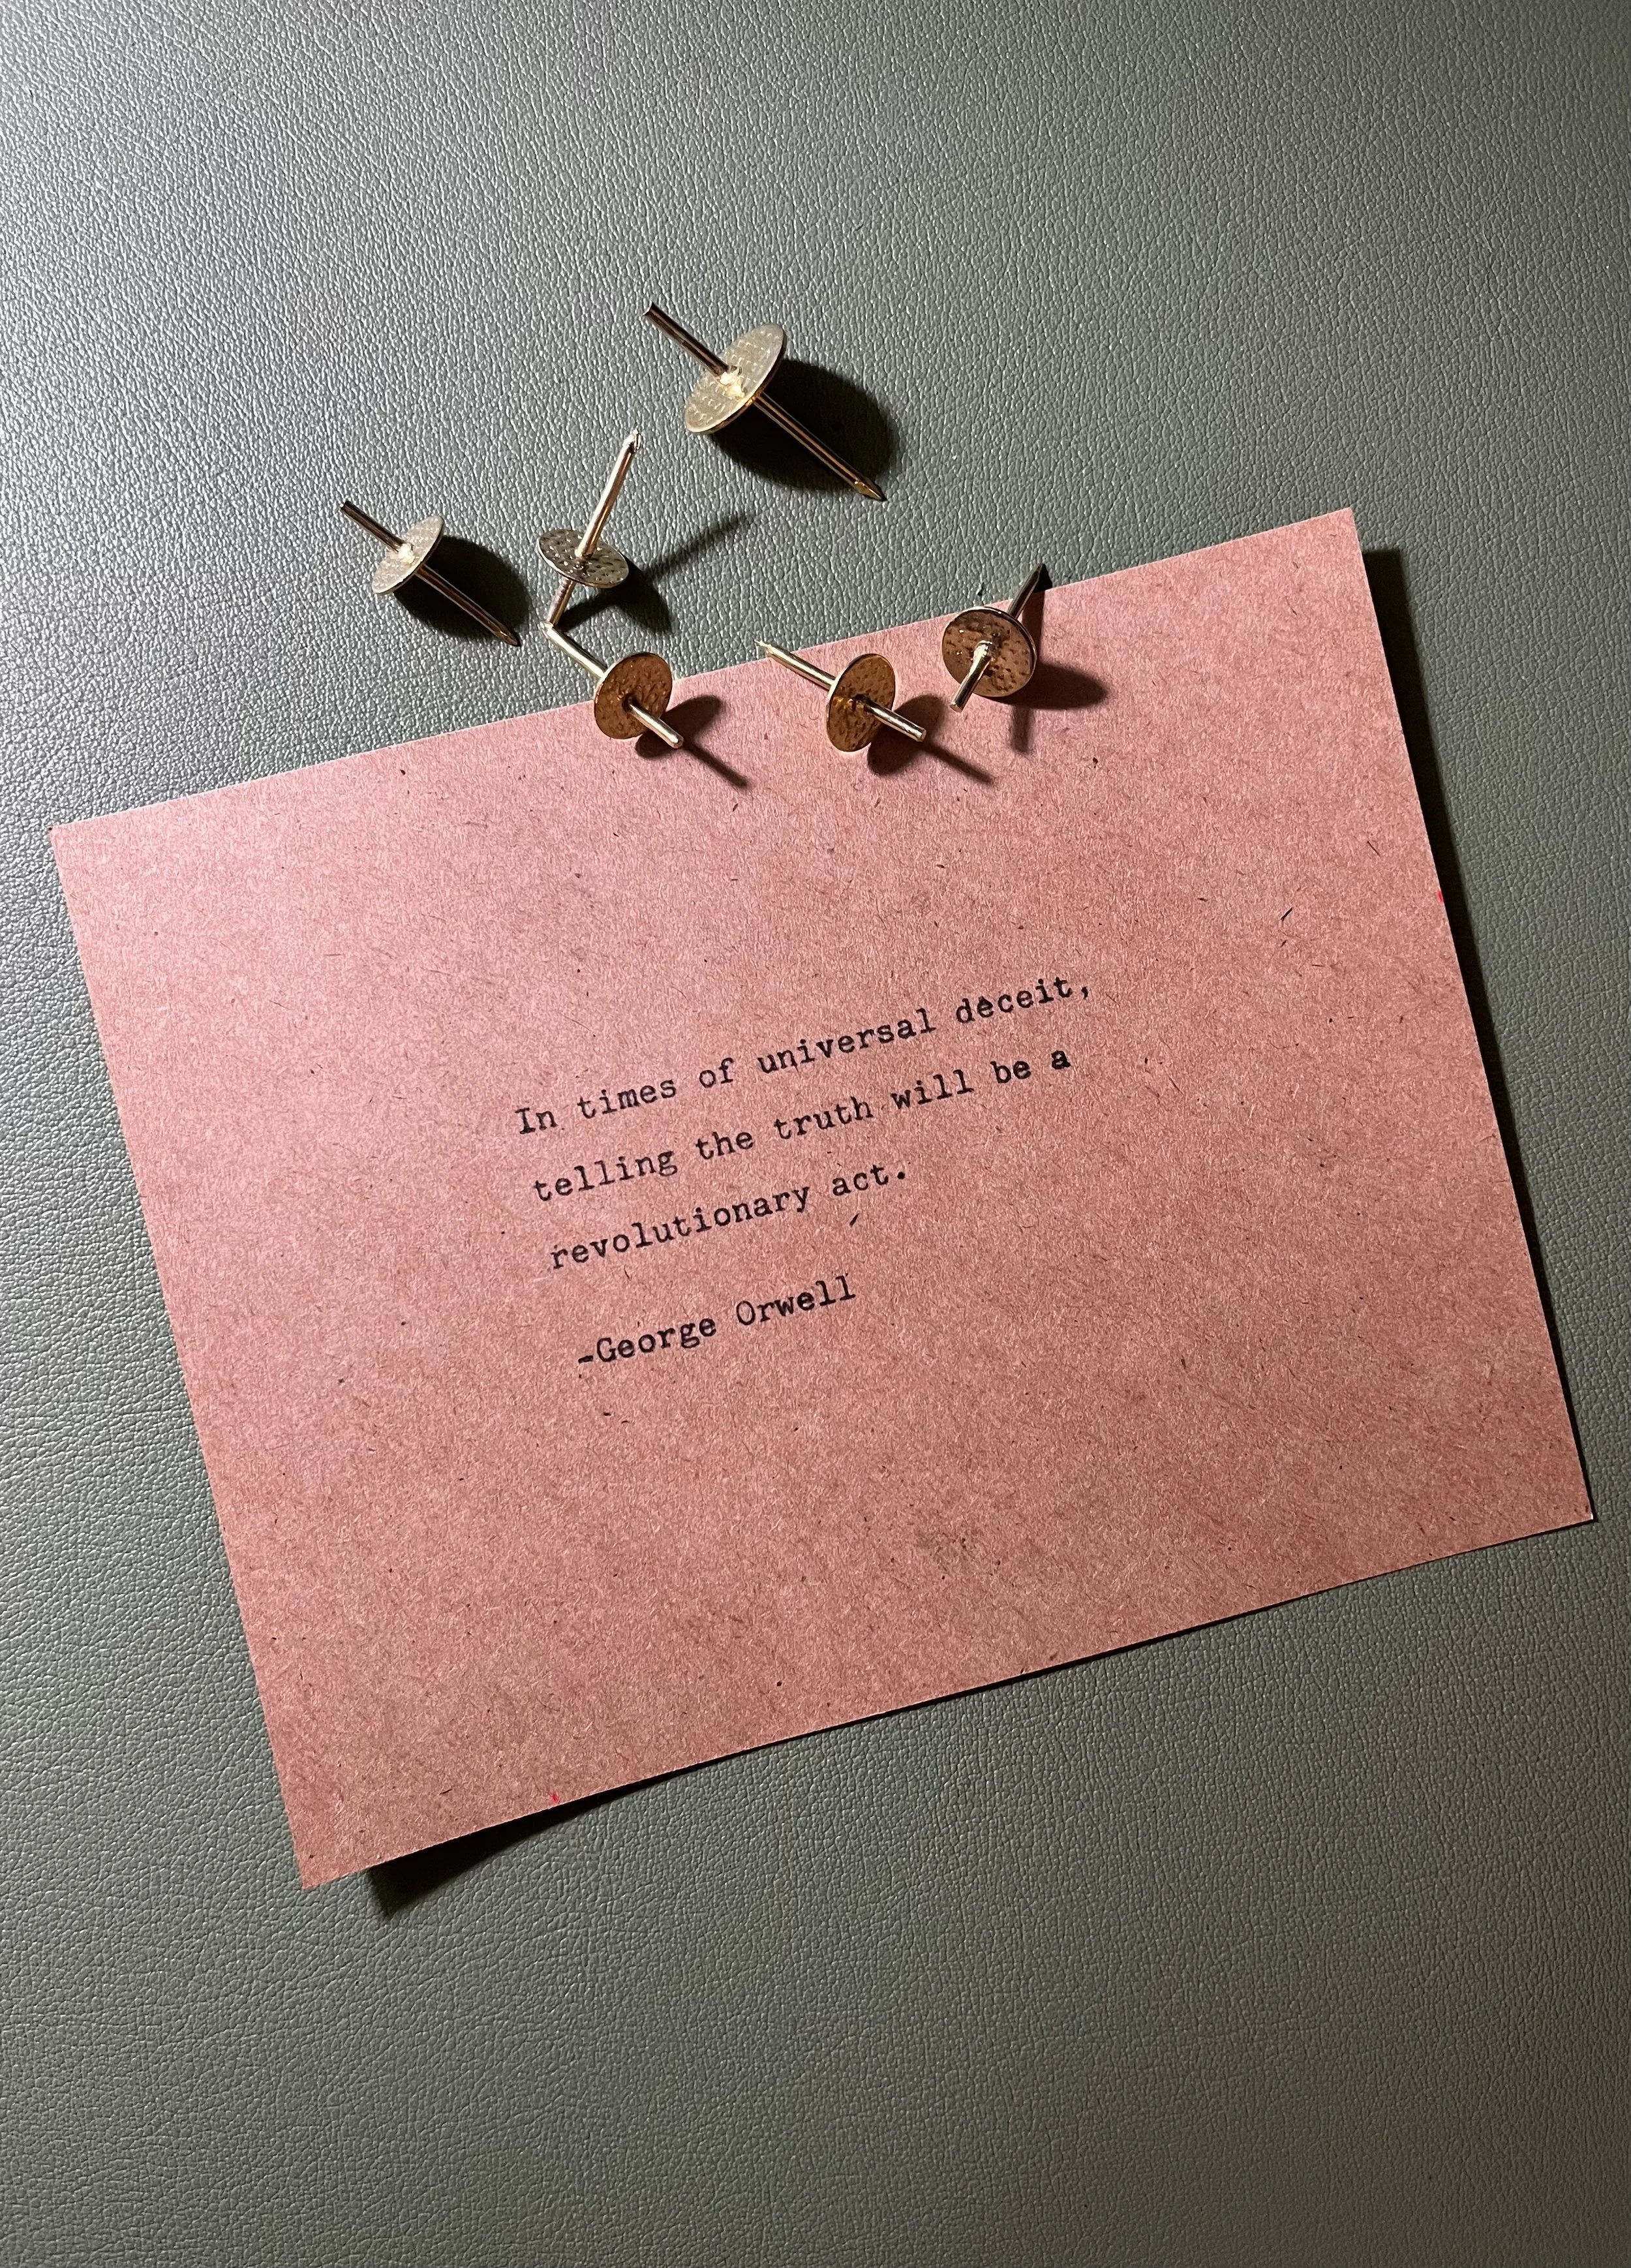 In times of universal deceit,
telling the truth will be a
revolutionary act.
-George Orwell